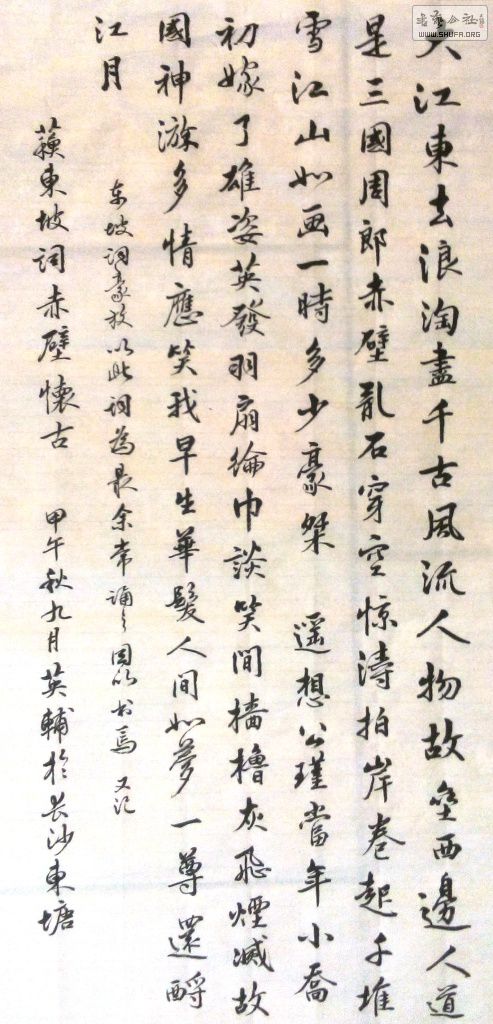 大江東去浪淘盡千古風流人物故壘西邊人道
是三國周郎赤壁亂石穿空惊濤拍岸卷起千堆
雪江山如画一時多少豪桀 遥想公瑾當年小喬
初嫁了雄姿英發羽扇綸巾談笑間檣櫓灰飛煙滅故
國神游多情應笑我早生華髮人间如夢一尊還酹
江月
东坡词豪放以此词為最余常诵之因以书焉 又记
蘇東坡词赤壁懷古 甲午秋九月英輔於长沙東塘
WWW.SHUFA.ORG